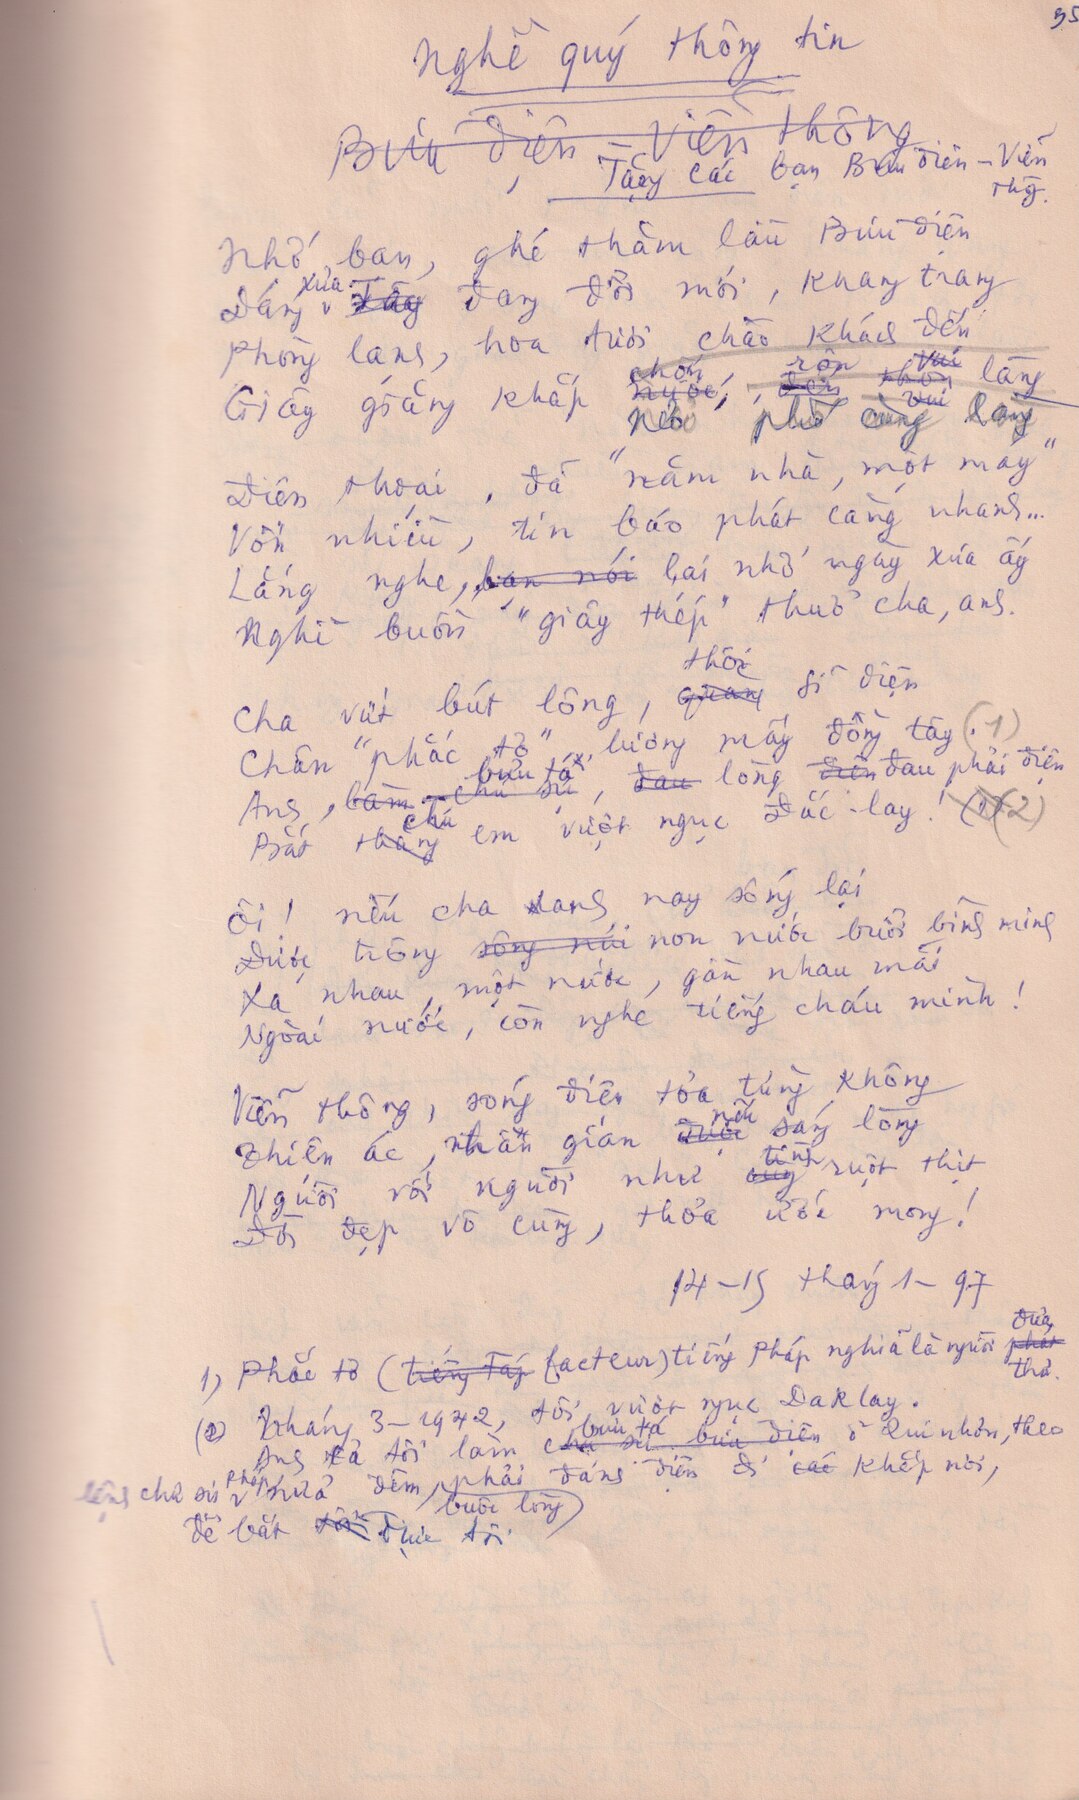 35
Nghề quý thông tin
Bưu điện – Viễn thông
Tặng các bạn Bưu điện – Viễn
thông.
Nhớ bạn, ghé thăm lầu Bưu điện
xưa
Dáng Tây đang đổi mới, khang trang
Phòng lạnh, hoa tươi chào khách đến
chốn, rộn vui
Giây giăng khắp nước, đến thôn làng
nẻo phố cùng làng vui
Điện thoại, đã "năm nhà, một máy"
Vốn nhiều, tin báo phát càng nhanh...
Lắng nghe, bạn nói lại nhớ ngày xưa ấy
Nghề buồn "giây thép" thuở cha, anh.
thôi
Cha vứt bút lông, quang đi điện
Chân "phắc tơ", lương mấy đồng tây (1)
bưu tá
Anh, làm chủ sự, đau lòng đến đau phải điện
chú
Bắt thằng em vượt ngục Đắc-lay! (1) (2)
Ôi! nếu cha anh nay sống lại
Được trông sông núi non nước buổi bình minh
Xa nhau, một nước, gần nhau mãi
Ngoài nước, còn nghe tiếng cháu mình!
Viễn thông, sóng điện tỏa từng không
nếu
Thiện ác, nhân gian được sáng lòng
tình
Người với người như cùng ruột thịt
Đời đẹp vô cùng, thỏa ước mong!
14–15 tháng 1–97
đưa
1) Phắc tơ (tiếng Tây facteur) tiếng Pháp nghĩa là người phát
thư.
(2) Tháng 3–1942, tôi vượt ngục Daklay.
bưu tá
Anh cả tôi làm chủ sự bưu điện ở Qui nhơn, theo
lệnh chủ sự Pháp nửa đêm, phải đánh điện đi các khắp nơi,
buộc lòng
để bắt tôi Thực tôi